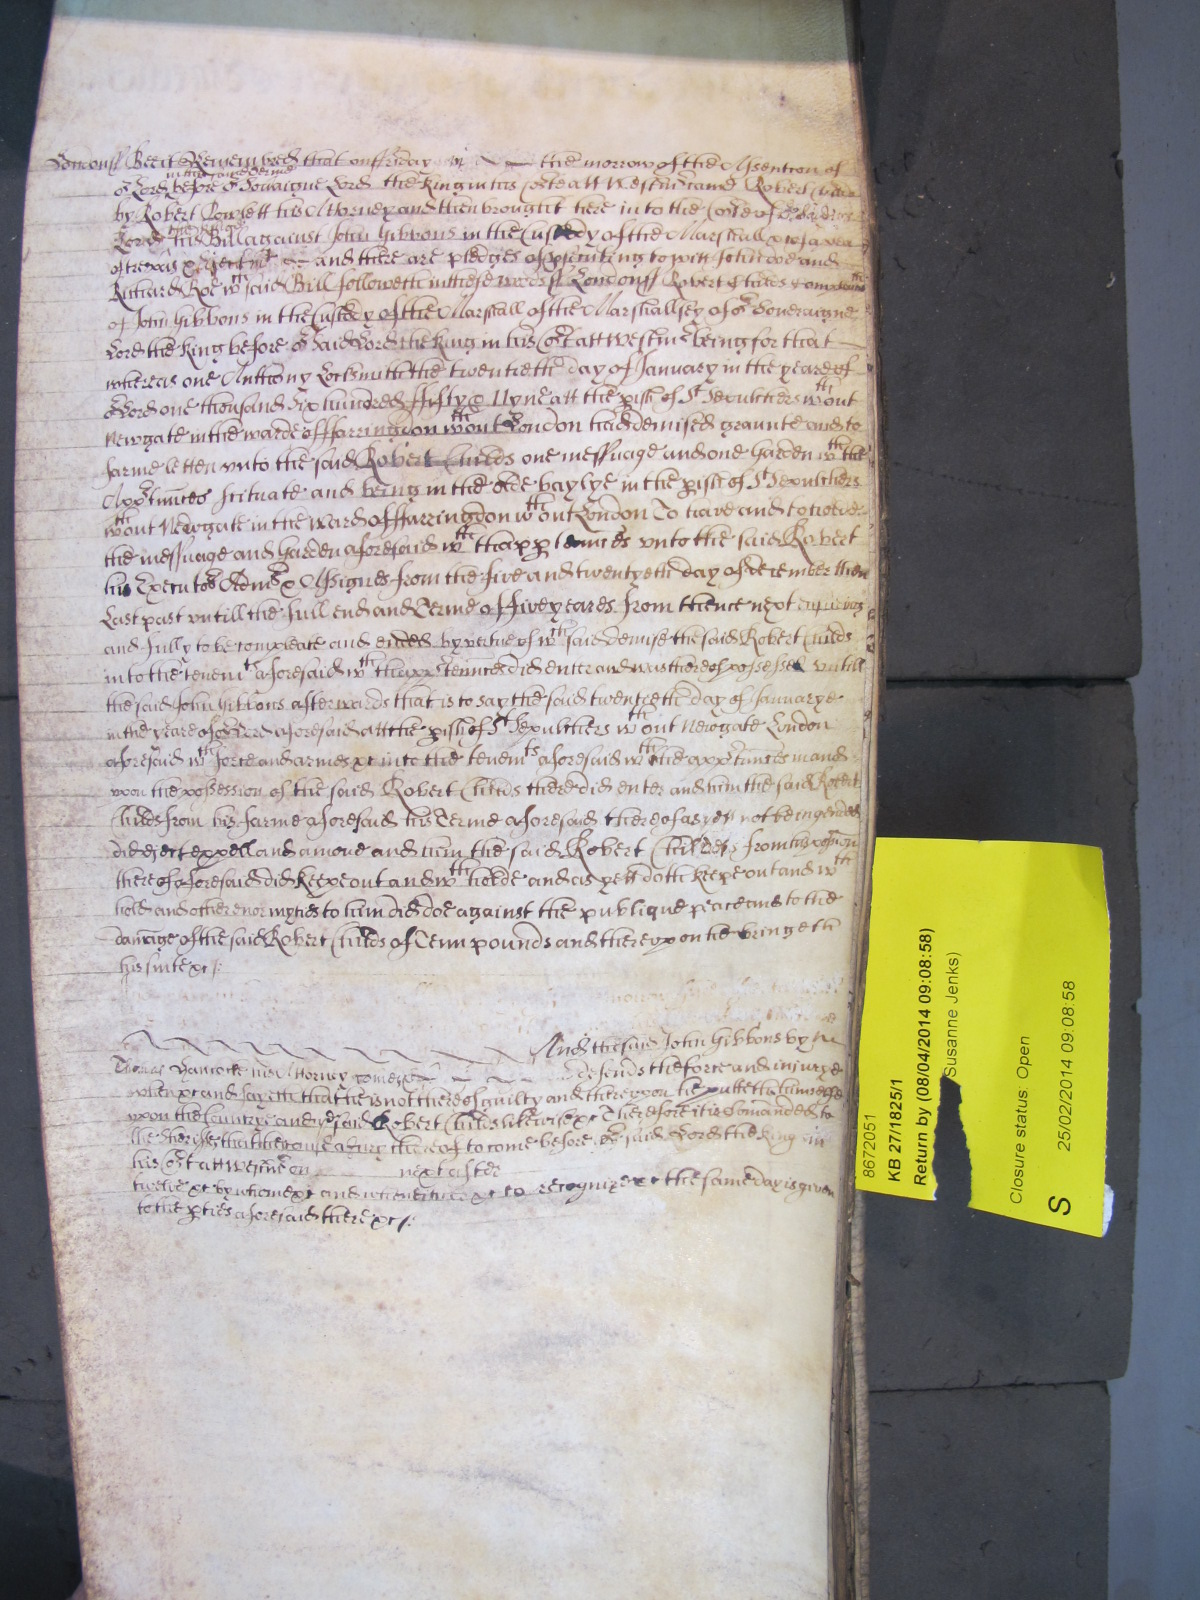 London ss Bee it Remembred that on ffriday in the morrow of the Assention of
in this same Terme
or Lord before or Soveraigne Lord the King in his Corte att Westmr came Robert Childs
by Robert Dowsett his Attorney and then brought here into the Corte of
Lord the King his Bill against John Gibbons in the Custody of the Marshall &c of a plea
of trespas & Ejectmt and there are pledges of prsecuting to witt John doe and
Richard Roe wch said Bill followeth in these words ss London ss Robert Childs complaines
of John Gibbons in the Custody of the Marshall of the Marshallsey of or Soveraigne
Lord the King before or said Lord the King in his Cort att Westmr being for that
whereas one Anthony Locksmith the twentieth day of January in the yeare of
or Lord one thousand Six hundred ffifty & Nyne att the pish of St Sepulchers wthout
Newgate in the warde of ffarringdon wthout London had demised graunted and to
farme letten unto the said Robert Childs one messuage and one Garden wth the
Apprtnnces scituate and being in the Olde baylye in the pish of St Sepulchers
wthout Newgate in the Ward of ffarringdon wthout London To have and to holde
the messuage and Garden aforesaid wth thapptennces unto the said Robert
his Executors Adms & Assignes from the five and twentyeth day of december then
Last past untill the full end and Terme of ffive yeares from thence next ensueing
and fully to be compleate and ended by vertue of wch said demise the said Robert Childs
into the tenemts aforesaid wth thapprtennces did enter and was thereof possessed untill
the said John Gibbons afterwards that is to say the said twentieth day of Januarye
in the yeare of or Lord aforesaid att the pish of St Sepulchers wthout Newgate London
aforesaid wth force and armes &c into the tenemts aforesaid wth the apprtnnces in and
upon the possession of the said Robert Childs there did enter and him the said Robert
Childs from his farme aforesaid his Terme aforesaid thereof as yett not being ended
did eject expell and amove and him the said Robert Childs from his possession
thereof aforesaid did keepe out and wthholde and as yett doth keepe out and wth
hold and other enormyties to him did doe against the publique peace and to the
damage of the said Robert Childs of Tenn pounds and thereupon he bringeth
his suite &c
And the said John Gibbons by
Thomas Hancocke his Attorney comes defends the force and injurye
when &c and sayeth that he is not thereof guilty and thereupon he putteth himselfe
upon the Countrye and the said Robert Childs likewise &c Therefore it is Comanded to
the Sheriffes that they cause a Jury thereof to come before or said Lord the King in
his Cort att Westmr on next after
twelve &c by whome &c and who neither &c to recognize &c the same day is given
to the pties aforesaid there &c
8672051
KB 27/1825/1
Return by (08/04/2014 09:08:58)
Susanne Jenks)
Closure status: Open
S 25/02/2014 09:08:58